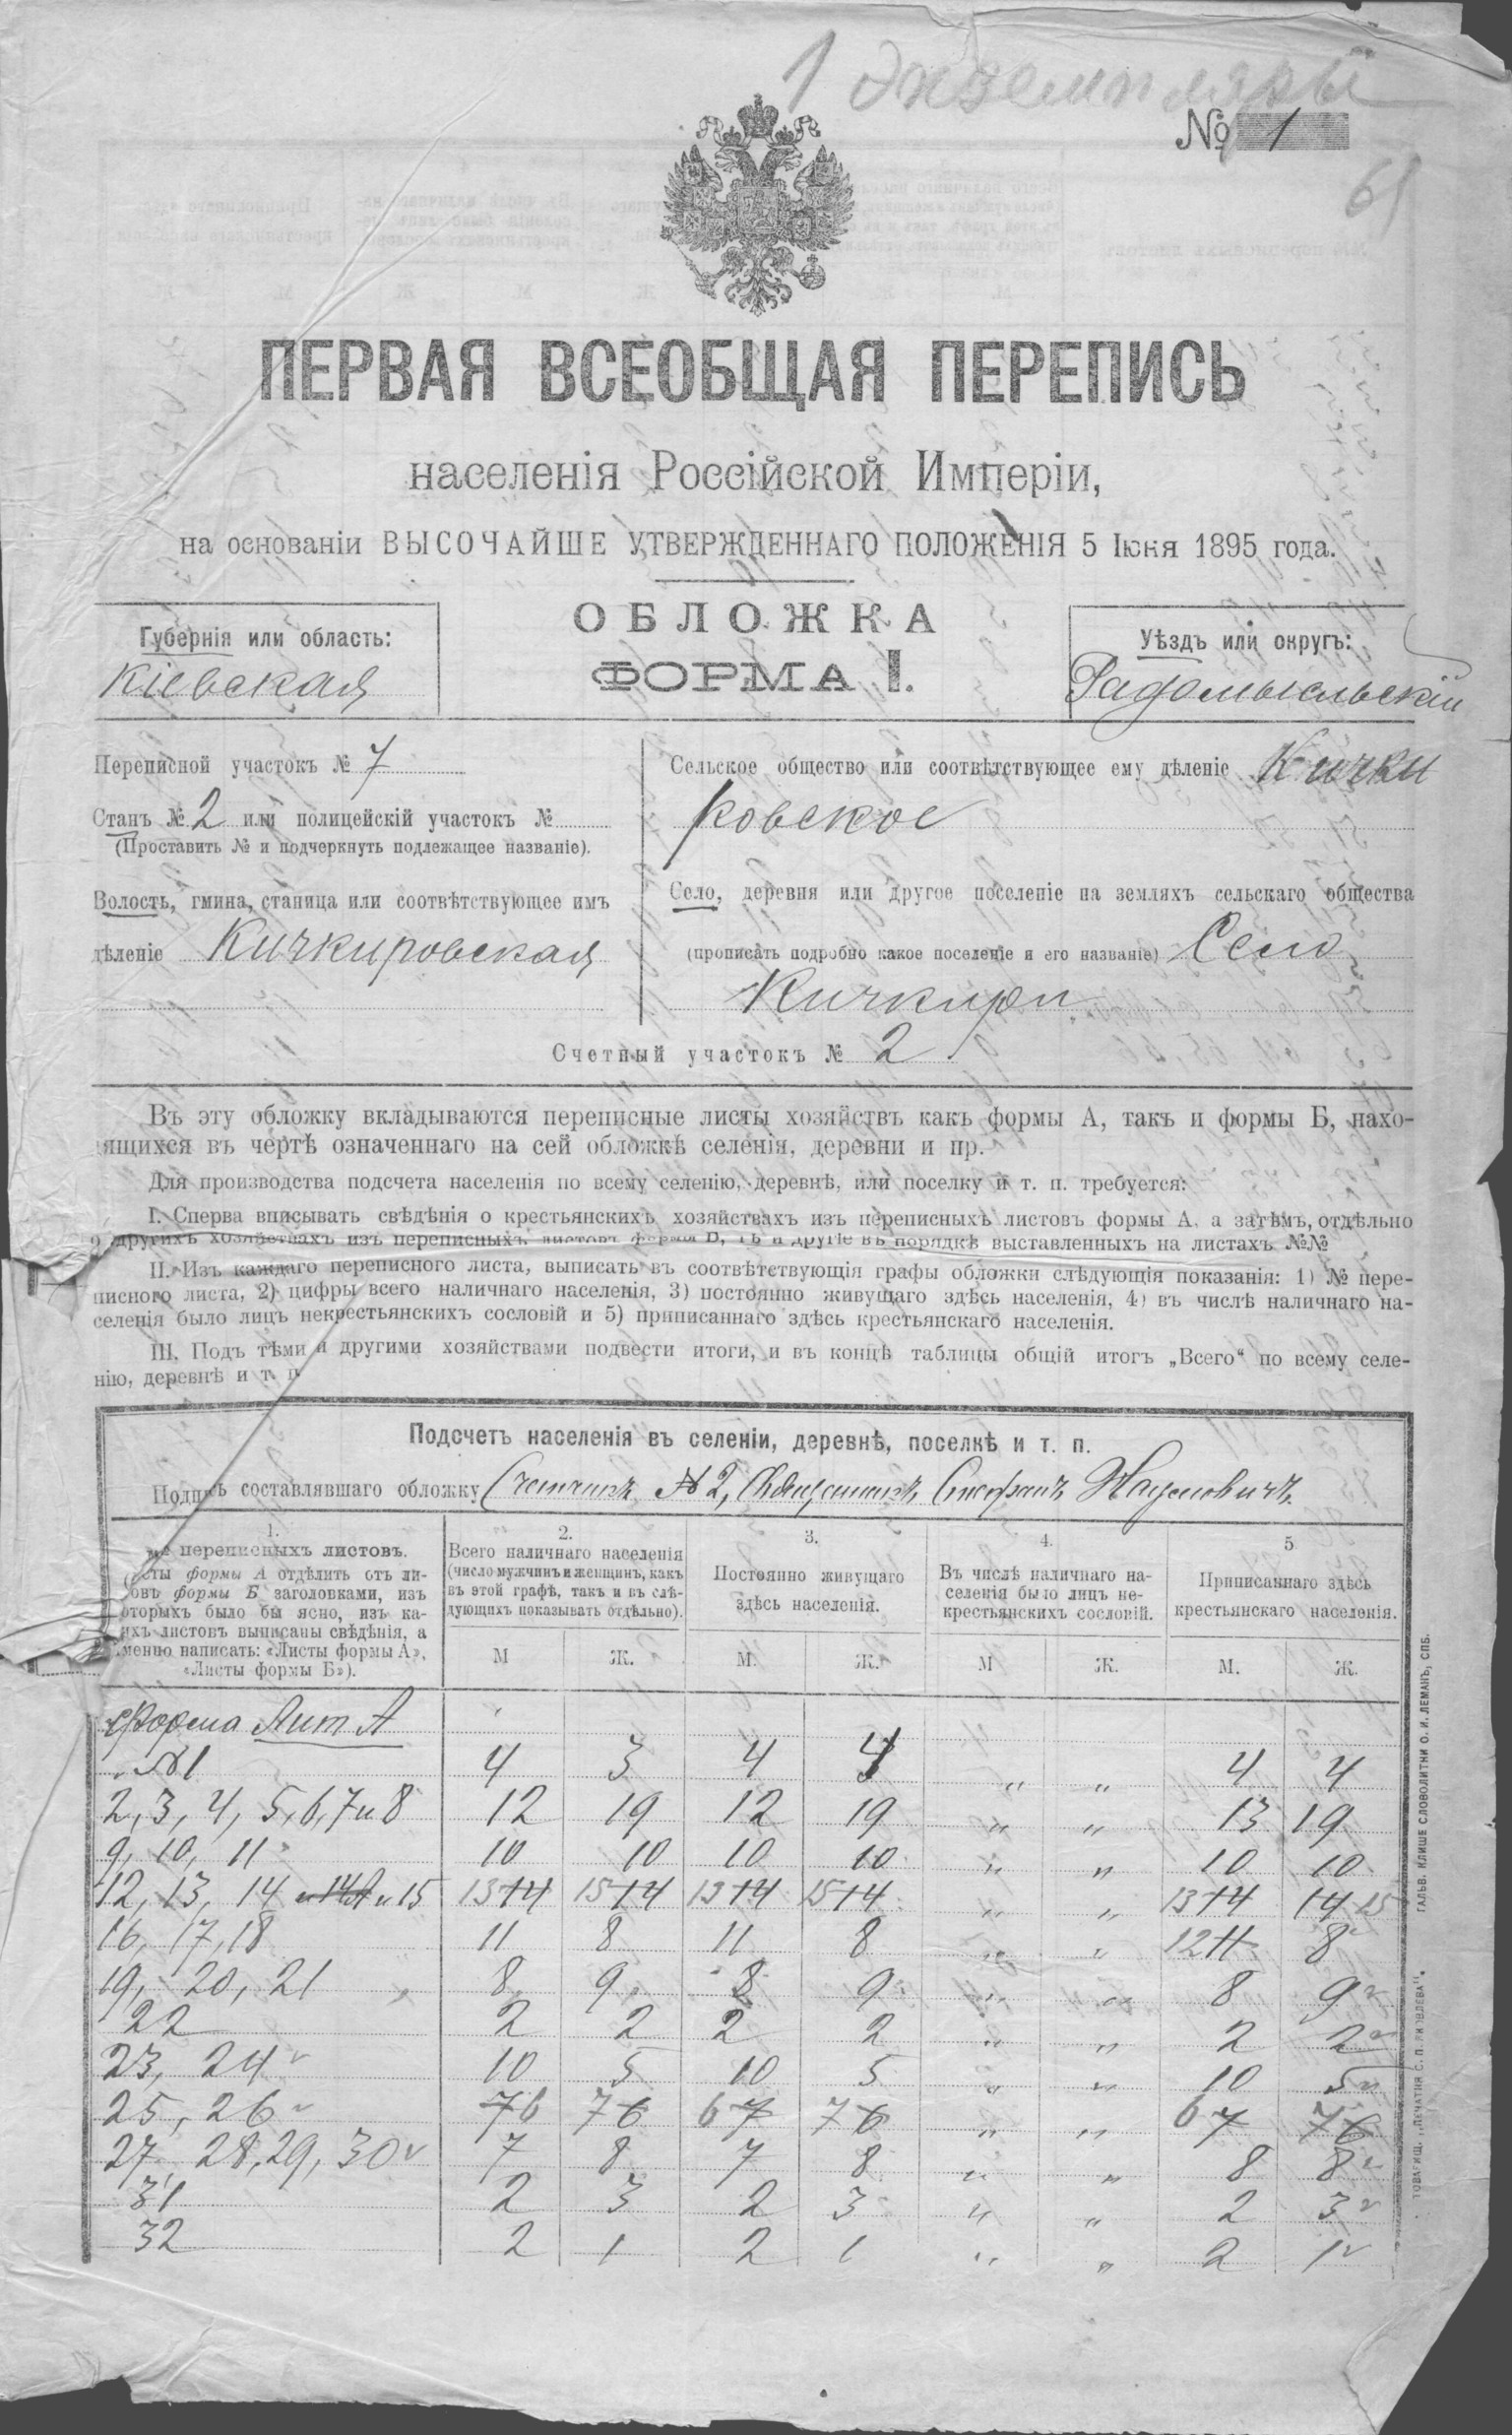 1 экземпляръ
№ 1
61
ПЕРВАЯ ВСЕОБЩАЯ ПЕРЕПИСЬ
населенія Россійской Имперіи,
на основаніи ВЫСОЧАЙШЕ УТВЕРЖДЕННАГО ПОЛОЖЕНІЯ 5 Іюня 1895 года.
ОБЛОЖКА
ФОРМА I.
Губернія или область:
Кіевская
Уѣздъ или округъ:
Радомысльскій
Переписной участокъ № 7
Станъ № 2 или полицейскій участокъ №
(Проставить № и подчеркнуть подлежащее названіе).
Волость, гмина, станица или соотвѣтствующее имъ
дѣленіе Кичкировская
Сельское общество или соотвѣтствующее ему дѣленіе Кички
ровское
Село, деревня или другое поселеніе на земляхъ сельскаго общества
(прописать подробно какое поселеніе и его названіе) Село
Кичкири
Счетный участокъ № 2
Въ эту обложку вкладываются переписные листы хозяйствъ какъ формы А, такъ и формы Б, нахо-
ящихся въ чертѣ означеннаго на сей обложкѣ селенія, деревни и пр.
Для производства подсчета населенія по всему селенію, деревнѣ, или поселку и т. п. требуется:
I. Сперва вписывать свѣдѣнія о крестьянскихъ хозяйствахъ изъ переписныхъ листовъ формы А, а затѣмъ, отдѣльно
о другихъ хозяйствахъ изъ переписныхъ листовъ формы Б, тѣ и другіе въ порядкѣ выставленныхъ на листахъ №№
II. Изъ каждаго переписного листа, выписать въ соотвѣтствующія графы обложки слѣдующія показанія: 1) № пере-
писного листа, 2) цифры всего наличнаго населенія, 3) постоянно живущаго здѣсь населенія, 4) въ числѣ наличнаго на-
селенія было лицъ некрестьянскихъ сословій и 5) приписаннаго здѣсь крестьянскаго населенія.
III. Подъ тѣми и другими хозяйствами подвести итоги, и въ концѣ таблицы общій итогъ „Всего“ по всему селе-
нію, деревнѣ и т. п.
Подсчетъ населенія въ селеніи, деревнѣ, поселкѣ и т. п.
Подпись составлявшаго обложку Счетчикъ № 2, Стефанъ Наумовичъ.
1.
№ переписныхъ листовъ.
(сты формы А отдѣлить отъ ли-
овъ формы Б заголовками, изъ
оторыхъ было бы ясно, изъ ка-
ихъ листовъ выписаны свѣдѣнія, а
менно написать: «Листы формы А»,
«Листы формы Б»).
2.
Всего наличнаго населенія
(число мужчинъ и женщинъ, какъ
въ этой графѣ, такъ и въ слѣ-
дующихъ показывать отдѣльно).
М Ж.
3.
Постоянно живущаго
здѣсь населенія.
М. Ж.
4.
Въ числѣ наличнаго на-
селенія было лицъ не-
крестьянскихъ сословій.
М Ж.
5
Приписаннаго здѣсь
крестьянскаго населенія.
М. Ж.
Форма Лит А
№1 4 3 4 4 „ „ 4 4
2, 3, 4, 5, 6, 7 и 8 12 19 12 19 „ „ 13 19
9, 10, 11 10 10 10 10 „ „ 10 10
12, 13, 14 и 14А и 15 13 14 15 14 13 14 15 14 „ „ 13 14 14 15
16, 17, 18 11 8 11 8 „ „ 12 11 8
19, 20, 21 8 9 8 9 „ „ 8 9
22 2 2 2 2 „ „ 2 2
23, 24 10 5 10 5 „ „ 10 5
25, 26 7 6 7 6 6 7 7 6 „ „ 6 7 7 6
27, 28, 29, 30 7 8 7 8 „ „ 8 8
31 2 3 2 3 „ „ 2 3
32 2 1 2 1 „ „ 2 1
ГАЛЬВ. КЛИШЕ СЛОВОЛИТНИ О. И. ЛЕМАНЪ, СПБ.
ТОВАРИЩ. „ПЕЧАТНЯ С. П. ЯКОВЛЕВА“.